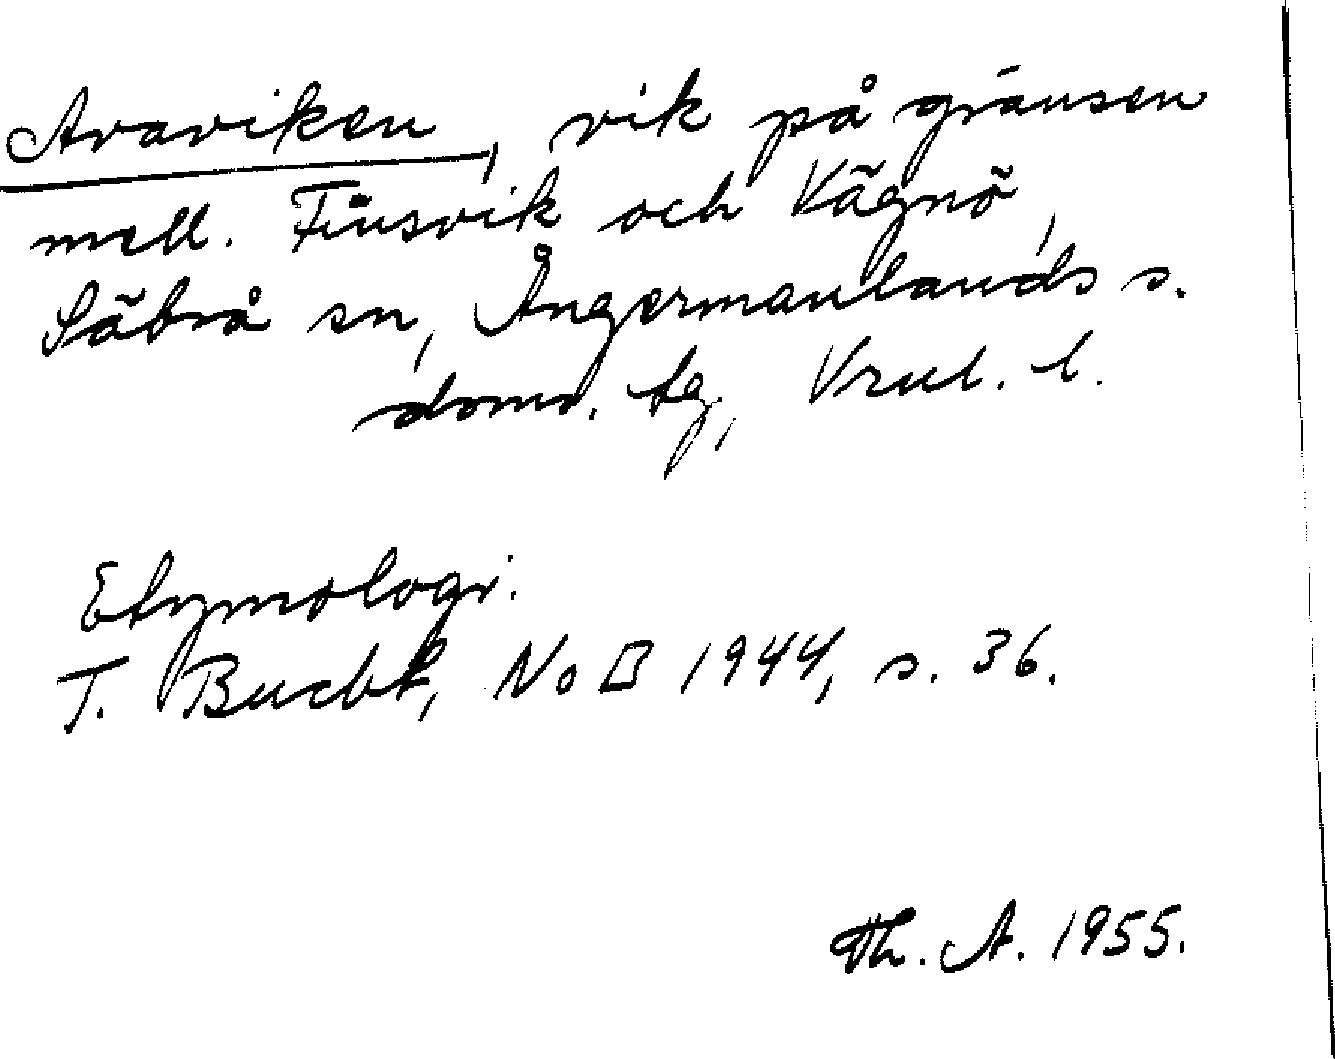 Avaviken, vik på gränsen
mell. Finsvik och Vägnö,
Säbrå sn, Ångermanlands s.
doms. tg, Vrnl. l.
Etymologi.
T. Bucht, NoB 1944, s. 36.
Th. A. 1955.